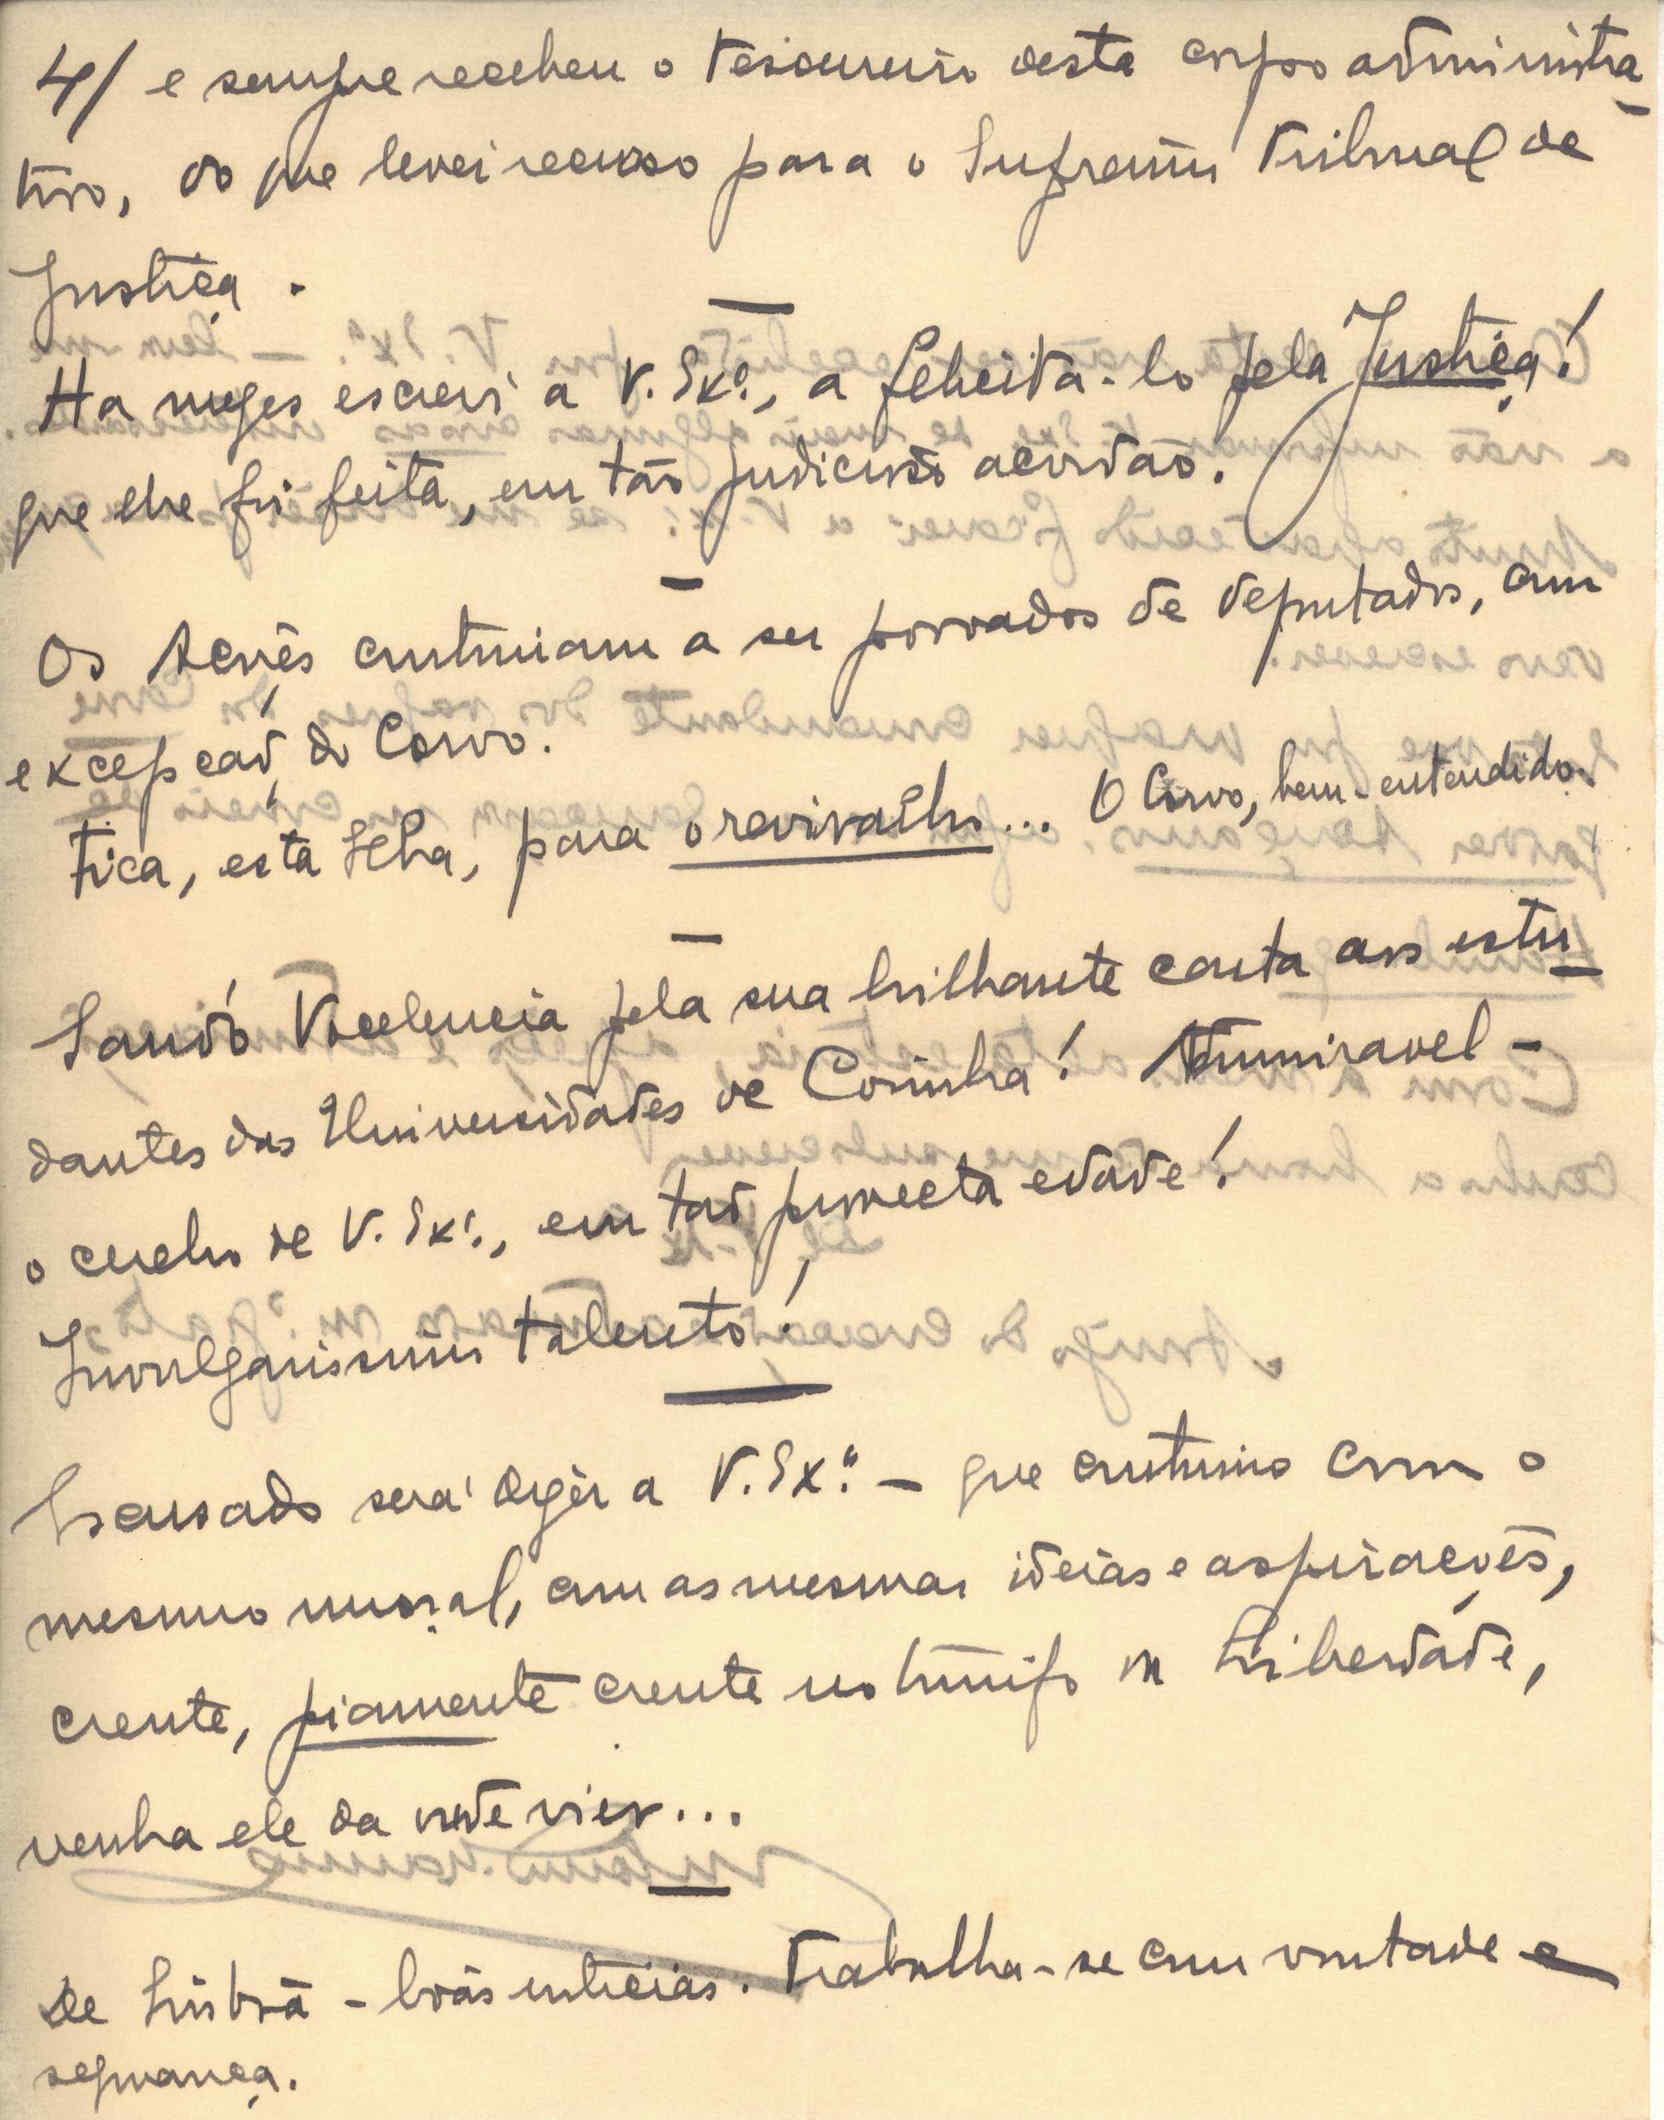 4/ e sempre recebeu o tesoureiro deste corpo administra-
tivo, do que levei recurso para o Supremo Tribunal de
Justiça.
Ha mezes escrevi a V. Exª., a felicita-lo pela Justiça!
que lhe foi feita, em tão judicioso acordão.
Os Açores continuam a ser povoados de deputados, com
excepção do Corvo.
fica, esta Ilha, para o reviralho... O Corvo, bem-entendido.
Saudo Vocelencia pela sua brilhante carta aos estu-
dantes das Universidades de Coimbra! Admiravel -
o cerebro de V. Exª., em tão provecta edade!
Invulgarissimo talento!
Escusado será dizer a V. Exª. - que continuo com o
mesmo moral, com as mesmas ideias e aspirações,
crente, piamente crente no triunfo da Liberdade,
venha ele da onde vier...
De Lisboa - boas noticias. Trabalha-se com vontade e
segurança.